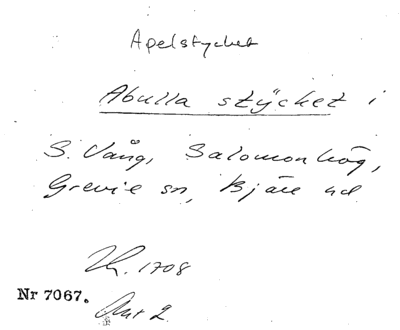 Apelstycket
Abulla stÿcket i
S. Vång, Salomonhög,
Grevie sn, Bjäre hd
Lh. 1708
Nr 7067.
Akt 2